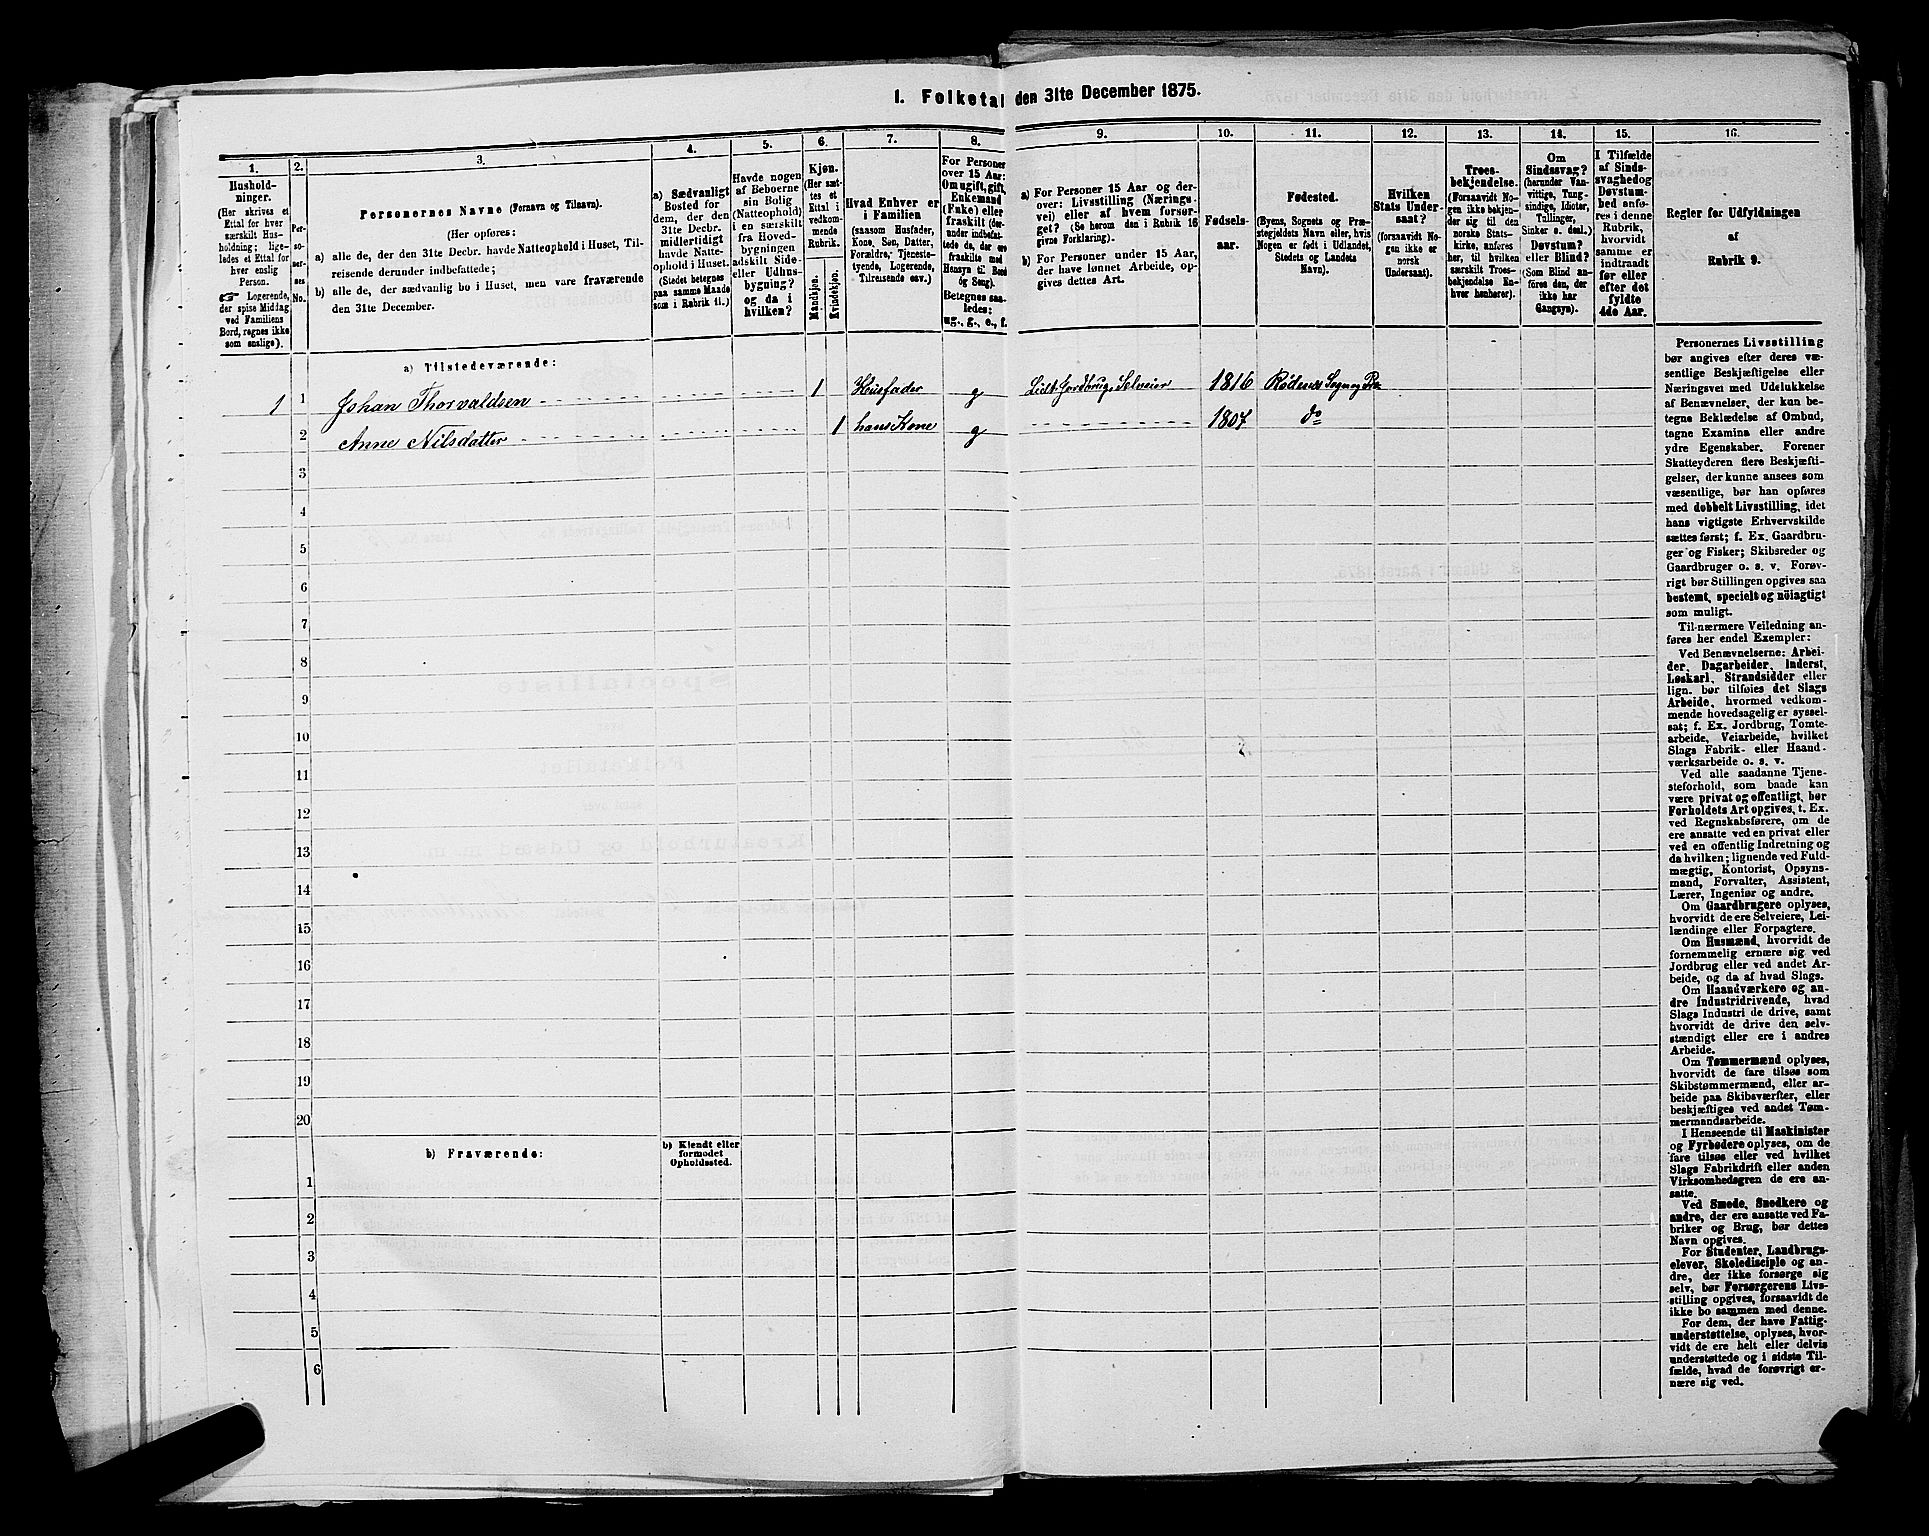 1. Folketal den 31te December 1875.
1.
2.
3.
4.
5.
6.
7.
8.
9.
10.
11.
12.
13.
14.
15.
16.
Hushold-
ninger.
(Her skrives et
Ettal for hver
særskilt Hus-
holdning; lige-
ledes et Ettal for
hver enslig
Person.
☞ Logerende,
der spise Middag
ved Familiens
Bord, regnes ikke
som enslige).
Per-
so-
ner-
nes
No.
Personernes Navne (Fornavn og Tilnavn).
(Her opføres:
a) alle de, der den 31te Decbr. havde Natteophold i Huset, Til-
reisende derunder indbefattede;
b) alle de, der sædvanlig bo i Huset, men vare fraværende
den 31te December.
a) Sædvanligt
Bosted for
dem, der den
31te Decbr.
midlertidigt
havde Natte-
ophold i Huset.
(Stedet betegnes
paa samme Maade
som i Rubrik 11.)
Havde nogen
af Beboerne
sin Bolig
(Natteophold)
i en særskilt
fra Hoved-
bygningen
adskilt Side-
eller Udhus-
bygning?
og da i
hvilken?
Kjøn.
(Her sæt-
tes et
Ettal i
vedkom-
mende
Rubrik.
Mandkjøn.
Kvindekjøn.
Hvad Enhver er
i Familien
(saasom Husfader,
Kone, Søn, Datter,
Forældre, Tjeneste-
tyende, Logerende,
Tilreisende osv.)
For Personer
over 15 Aar:
Om ugift, gift,
Enkemand
(Enke) eller
fraskilt (der-
under indbefat-
tede de, der ere
fraskilte med
Hensyn til Bord
og Seng).
Betegnes saa-
ledes:
ug., g., e., f.
a) For Personer 15 Aar og der-
over: Livsstilling (Nærings-
vei) eller af hvem forsør-
get? (Se herom den i Rubrik 16
givne Forklaring).
b) For Personer under 15 Aar,
der have lønnet Arbeide, op-
gives dettes Art.
Fødsels-
aar.
Fødested.
(Byens, Sognets og Præ-
stegjeldets Navn eller, hvis
Nogen er født i Udlandet,
Stedets og Landets
Navn).
Hvilken
Stats Under-
saat?
(forsaavidt No-
gen ikke er
norsk
Undersaat).
Troes-
bekjendelse.
(Forsaavidt No-
gen ikke bekjen-
der sig til den
norske Stats-
kirke, anføres
her, til hvilken
særskilt Troes-
bekjendelse En-
hver henhører).
Om
Sindssvag?
(herunder Van-
vittige, Tung-
sindige, Idioter,
Tullinger,
Sinker o. desl.)
Døvstum?
eller Blind?
(Som Blind an-
føres den, der
ikke har
Gangsyn).
I Tilfælde
af Sinds-
svaghed og
Døvstum-
hed anfø-
res i denne
Rubrik,
hvorvidt
samme er
indtraadt
før eller
efter det
fyldte
4de Aar.
Regler for Udfyldningen
af
Rubrik 9.
a) Tilstedeværende:
1 1 Johan Thorvaldsen 1 Husfader g Lidt Jordbrug, Selveier 1816 Rødenes Sogn og Præ
2 Anne Nilsdatter 1 hans Kone g 1807 do
3
4
5
6
7
8
9
10
11
12
13
14
15
16
17
18
19
20
b) Fraværende:
b) Kjendt eller
formodet
Opholdssted.
1
2
3
4
5
6
Personernes Livsstilling
bør angives efter deres væ-
sentlige Beskjæftigelse eller
Næringsvei med Udelukkelse
af Benævnelser, der kun be-
tegne Beklædelse af Ombud,
tagne Examina eller andre
ydre Egenskaber. Forener
Skatteyderen flere Beskjæfti-
gelser, der kunne ansees som
væsentlige, bør han opføres
med dobbelt Livsstilling, idet
hans vigtigste Erhvervskilde
sættes først; f. Ex. Gaardbru-
ger og Fisker; Skibsreder og
Gaardbruger o. s. v. Forøv-
rigt bør Stillingen opgives saa
bestemt, specielt og nöiagtigt
som muligt.
Til nærmere Veiledning an-
føres her endel Exempler:
Ved Benævnelserne: Arbei-
der, Dagarbeider, Inderst,
Løskarl, Strandsidder eller
lign. bør tilføies det Slags
Arbeide, hvormed vedkom-
mende hovedsagelig er syssel-
sat; f. Ex. Jordbrug, Tomte-
arbeide, Veiarbeide, hvilket
Slags Fabrik- eller Haand-
værksarbeide o. s. v.
Ved alle saadanne Tjene-
steforhold, som baade kan
være privat og offentligt, bør
Forholdets Art opgives, t. Ex.
ved Regnskabsførere, om de
ere ansatte ved en privat eller
ved en offentlig Indretning og
da hvilken; lignende ved Fuld-
mægtig, Kontorist, Opsyns-
mand, Forvalter, Assistent,
Lærer, Ingeniør og andre.
Om Gaardbrugere oplyses,
hvorvidt de ere Selveiere, Lei-
lændinge eller Forpagtere.
Om Husmænd, hvorvidt de
fornemmelig ernære sig ved
Jordbrug eller ved andet Ar-
beide, og da af hvad Slags.
Om Haandværkere og an-
dre Industridrivende, hvad
Slags Industri de drive, samt
hvorvidt de drive den selv-
stændigt eller ere i andres
Arbeide.
Om Tømmermænd oplyses,
hvorvidt de fare tilsøs som
Skibstømmermænd, eller ar-
beide paa Skibsværfter, eller
beskjæftiges ved andet Tøm-
mermandsarbeide.
I Henseende til Maskinister
og Fyrbødere oplyses, om de
fare tilsøs eller ved hvilket
Slags Fabrikdrift eller anden
Virksomhedsgren de ere an-
satte.
Ved Smede, Snedkere og
andre, der ere ansatte ved Fa-
briker og Brug, bør dettes
Navn opgives.
For Studenter, Landbrugs-
elever, Skoledisciple og an-
dre, der ikke forsørge sig
selv, bør Forsørgerens Livs-
stilling opgives, forsaavidt de
ikke bo sammen med denne.
For dem, der have Fattig-
understøttelse, oplyses, hvor-
vidt de ere helt eller delvis
understøttede og i sidste Til-
fælde, hvad de forøvrigt er-
nære sig ved.